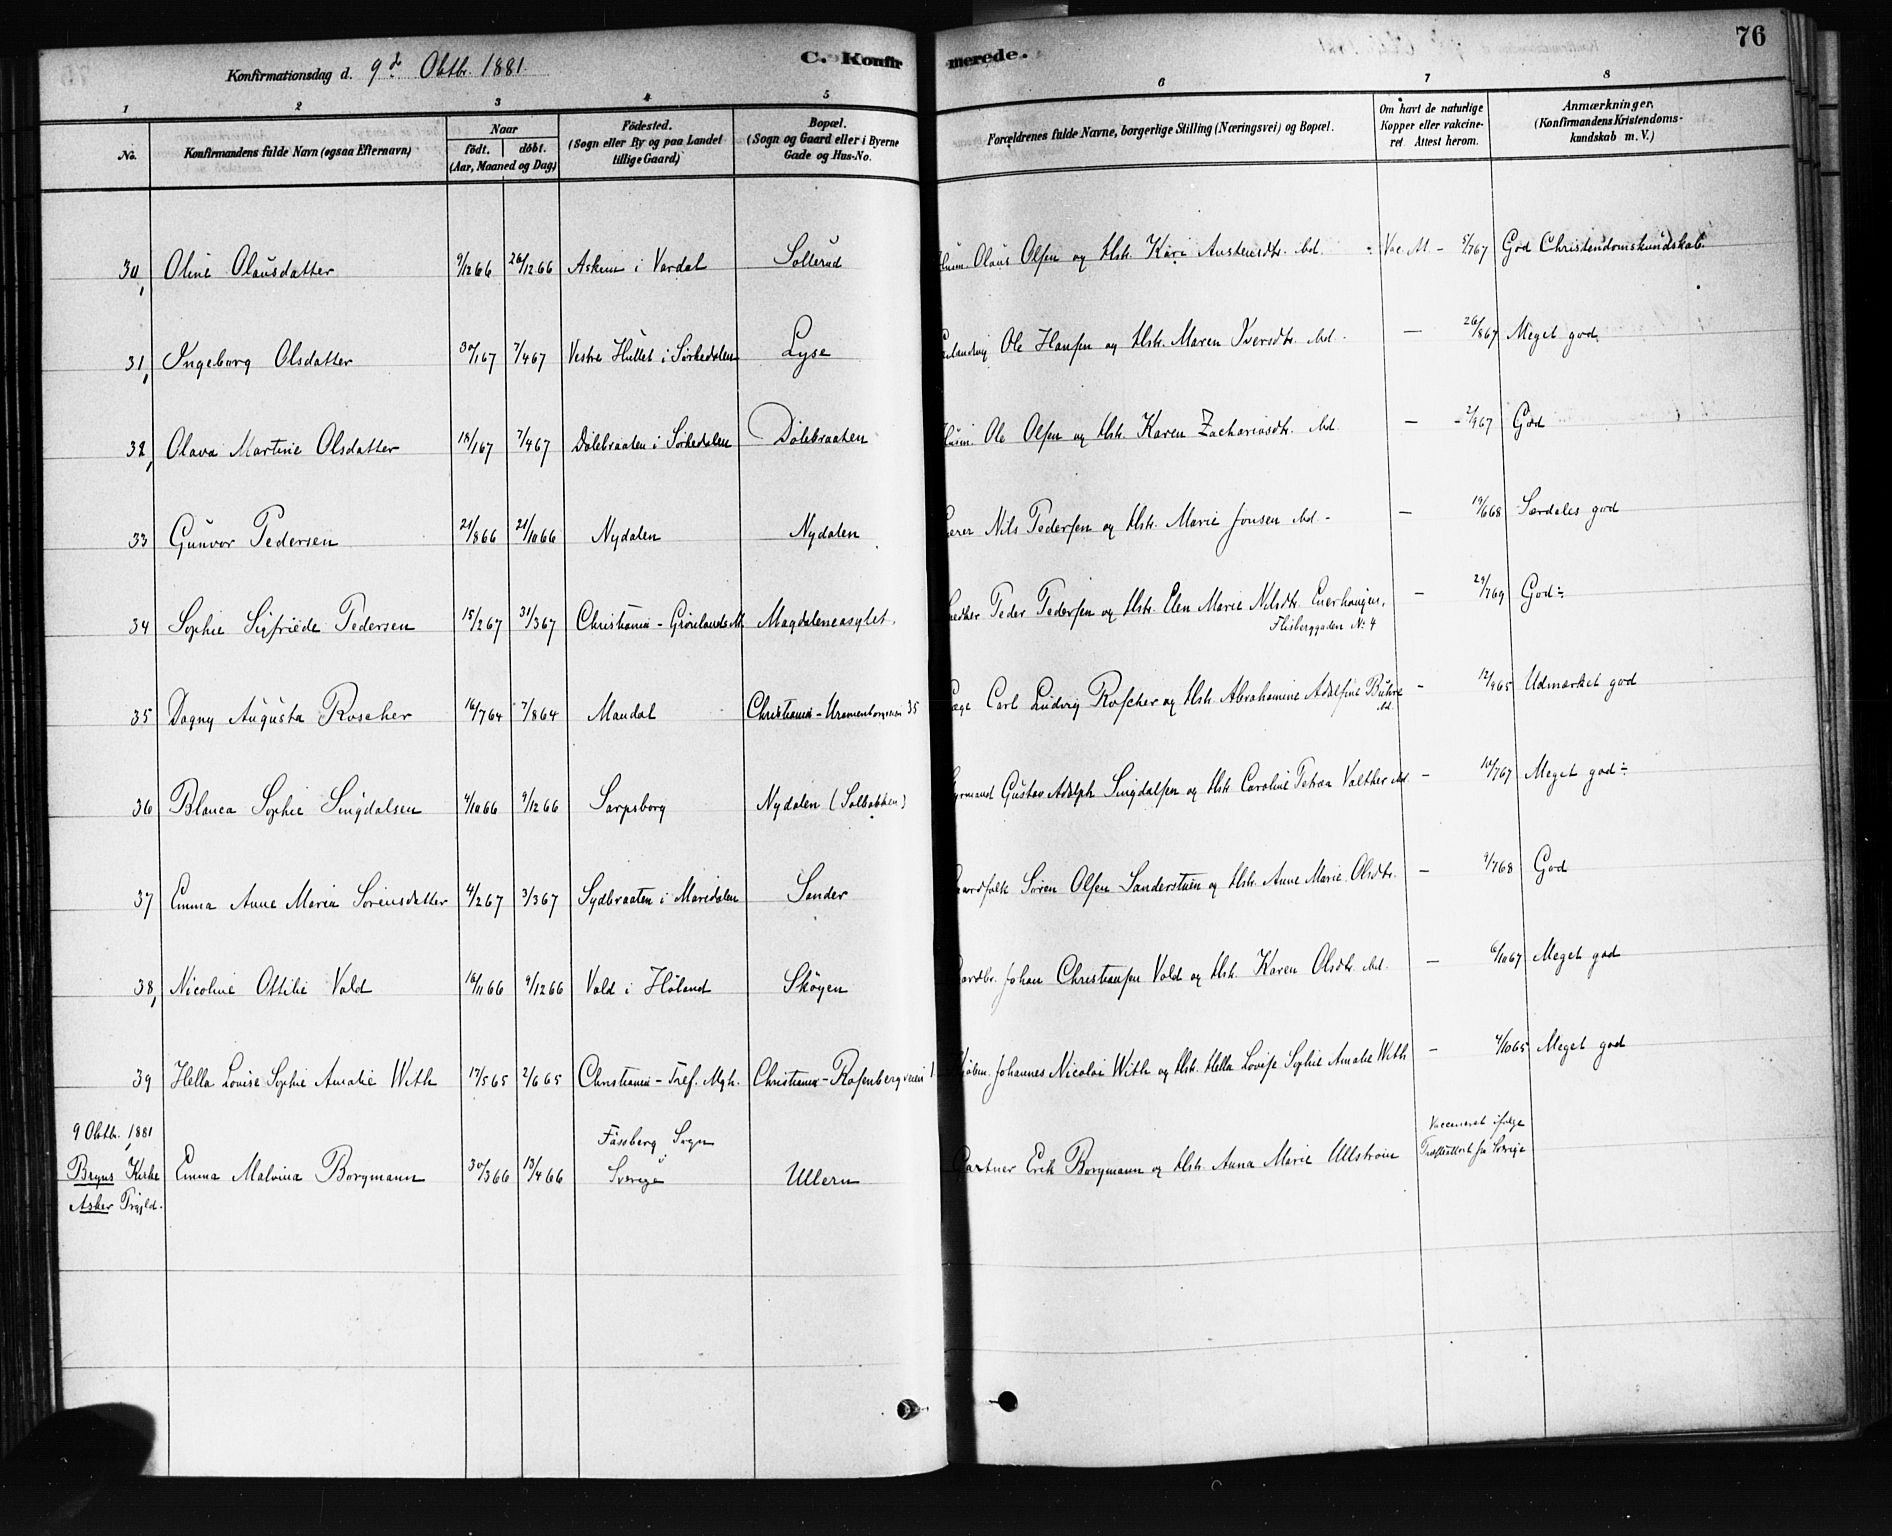 76
Konfirmationsdag d. 9d Oktbr 1881
C. Konfirmerede.
1 2 3 4 5 6 7 8
No.
Konfirmandens fulde Navn (ogsaa Efternavn)
Naar
födt. döbt.
(Aar, Maaned og Dag)
Födested.
(Sogn eller By og paa Landet
tillige Gaard)
Bopæl.
(Sogn og Gaard eller i Byerne
Gade og Hus-No.
Forældrenes fulde Navne, borgerlige Stilling (Næringsvei) og Bopæl.
Om havt de naturlige
Kopper eller vakcine-
ret Attest herom.
Anmærkninger,
(Konfirmandens Kristendoms-
kundskab m. V.)
30, Oline Olausdatter 9/12 66 26/12 66 Askim i Vardal Sollerud Husm. Olaus Olsen og Hstr. Kari Austensdtr. ibd. Vac. Att. - 5/7 67 God Christendomskundskab
31, Ingeborg Olsdatter 30/1 67 7/4 67 Vestre Hullet i Sörkedalen Lyse Ole Hansen og Hstr. Maren Iversdtr. ibd. — 26/8 67 Meget god
32, Olava Martine Olsdatter 18/1 67 7/4 67 Dölebraaten i Sörkedalen Dölebraaten Husm. Ole Olsen og Hstr. Karen Zachariasdtr. ibd. — 2/9 67 God
33 Gunvor Pedersen 21/8 66 21/10 66 Nydalen Nydalen Nils Pedersen og Hstr. Marie Jonsen ibd. — 19/6 68 Særdeles god
34 Sophie Sigfriede Pedersen 15/2 67 31/3 67 Christiania - Grönlands M. Magdaleneasylet. Snedker Peder Pedersen og Hstr. Elen Marie Nilsdtr. Enerhaugen, — 29/7 69 God÷
Flisberggaden No 4
35 Dagny Augusta Roscher 16/7 64 7/8 64 Mandal Christiania - Uranienborgveien 35 Læge Carl Ludvig Roscher og Hstr. Abrahamine Adolfine Buhre — 12/9 65 Udmærket god
ibd.
36 Blanca Sophie Singdalsen 4/10 66 9/12 66 Sarpsborg Nydalen (Solbakken) Styrmand Gustav Adolph Singdalsen og Hstr. Caroline Petrea Valther ibd. — 10/7 67 Meget god÷
37 Emma Anne Maria Sörensdatter 4/2 67 3/3 67 Sydbraaten i Maridalen Sander Gaardfolk Sören Olsen Sanderstuen og Hstr. Anne Marie Olsdtr. — 9/7 68 God
38, Nicoline Ottilie Vold 16/11 66 9/12 66 Vold i Höland Sköyen Gaardbr. Johan Christiansen Vold og Hstr. Karen Olsdtr. ibd. — 6/10 67 Meget god
39 Hella Lovise Sophie Amalie With 17/5 65 2/6 65 Christiania - Tref. Mgh. Christiania - Rosenbergveien 1. Kjöbm. Johannes Nicolai With og Hstr. Hella Lovise Sophie Amalie With — 4/10 65 Meget god
9 Oktbr. 1881
Bryns Kirke
Asker Prgjld.
Emma Malvina Borgmann 30/3 66 13/4 66 Fässberg Sogn
Sverige
Ullern Gartner Erik Borgmann og Hstr. Anna Marie Ullström
Vaccineret ifølge
fra Sverige